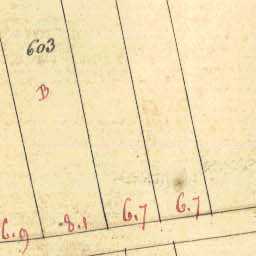 603
B
6.9 8.1 6.7 6.7